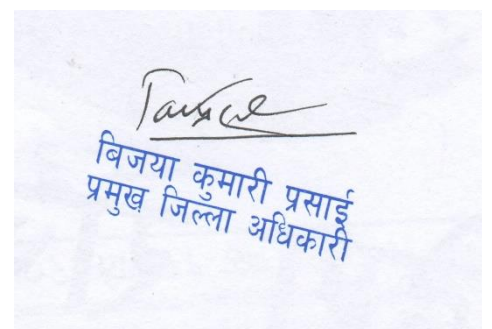 बिजया कुमारी प्रसाई
प्रमुख जिल्ला अधिकारी